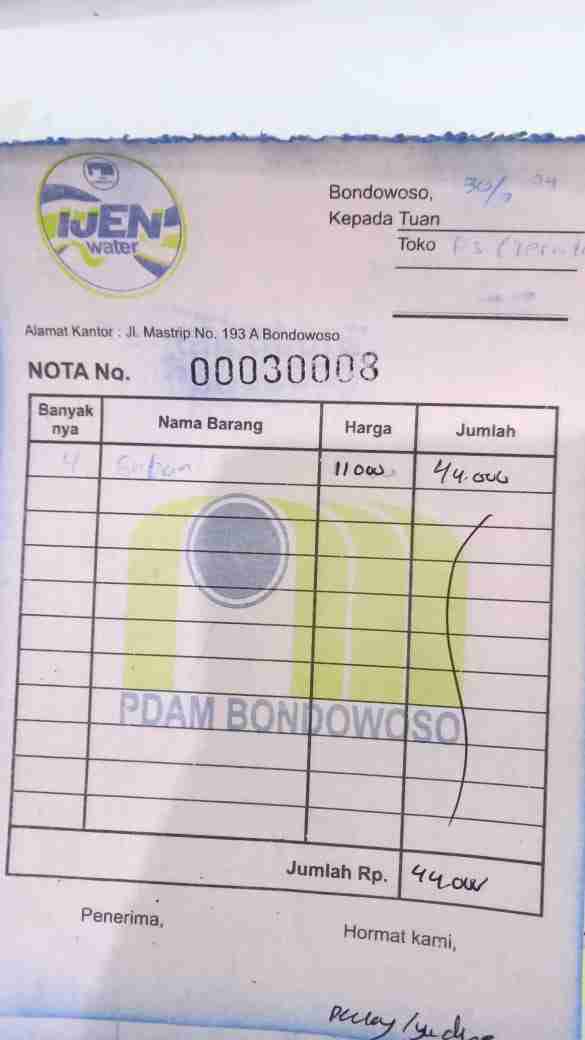 IJEN
water
Bondowoso, 30/7 24
Kepada Tuan
Toko
Alamat Kantor : Jl. Mastrip No. 193 A Bondowoso
NOTA No. 00030008
Banyak nya Nama Barang Harga Jumlah
4 11000 44.000
PDAM BONDOWOSO
Jumlah Rp. 44.000
Penerima, Hormat kami,